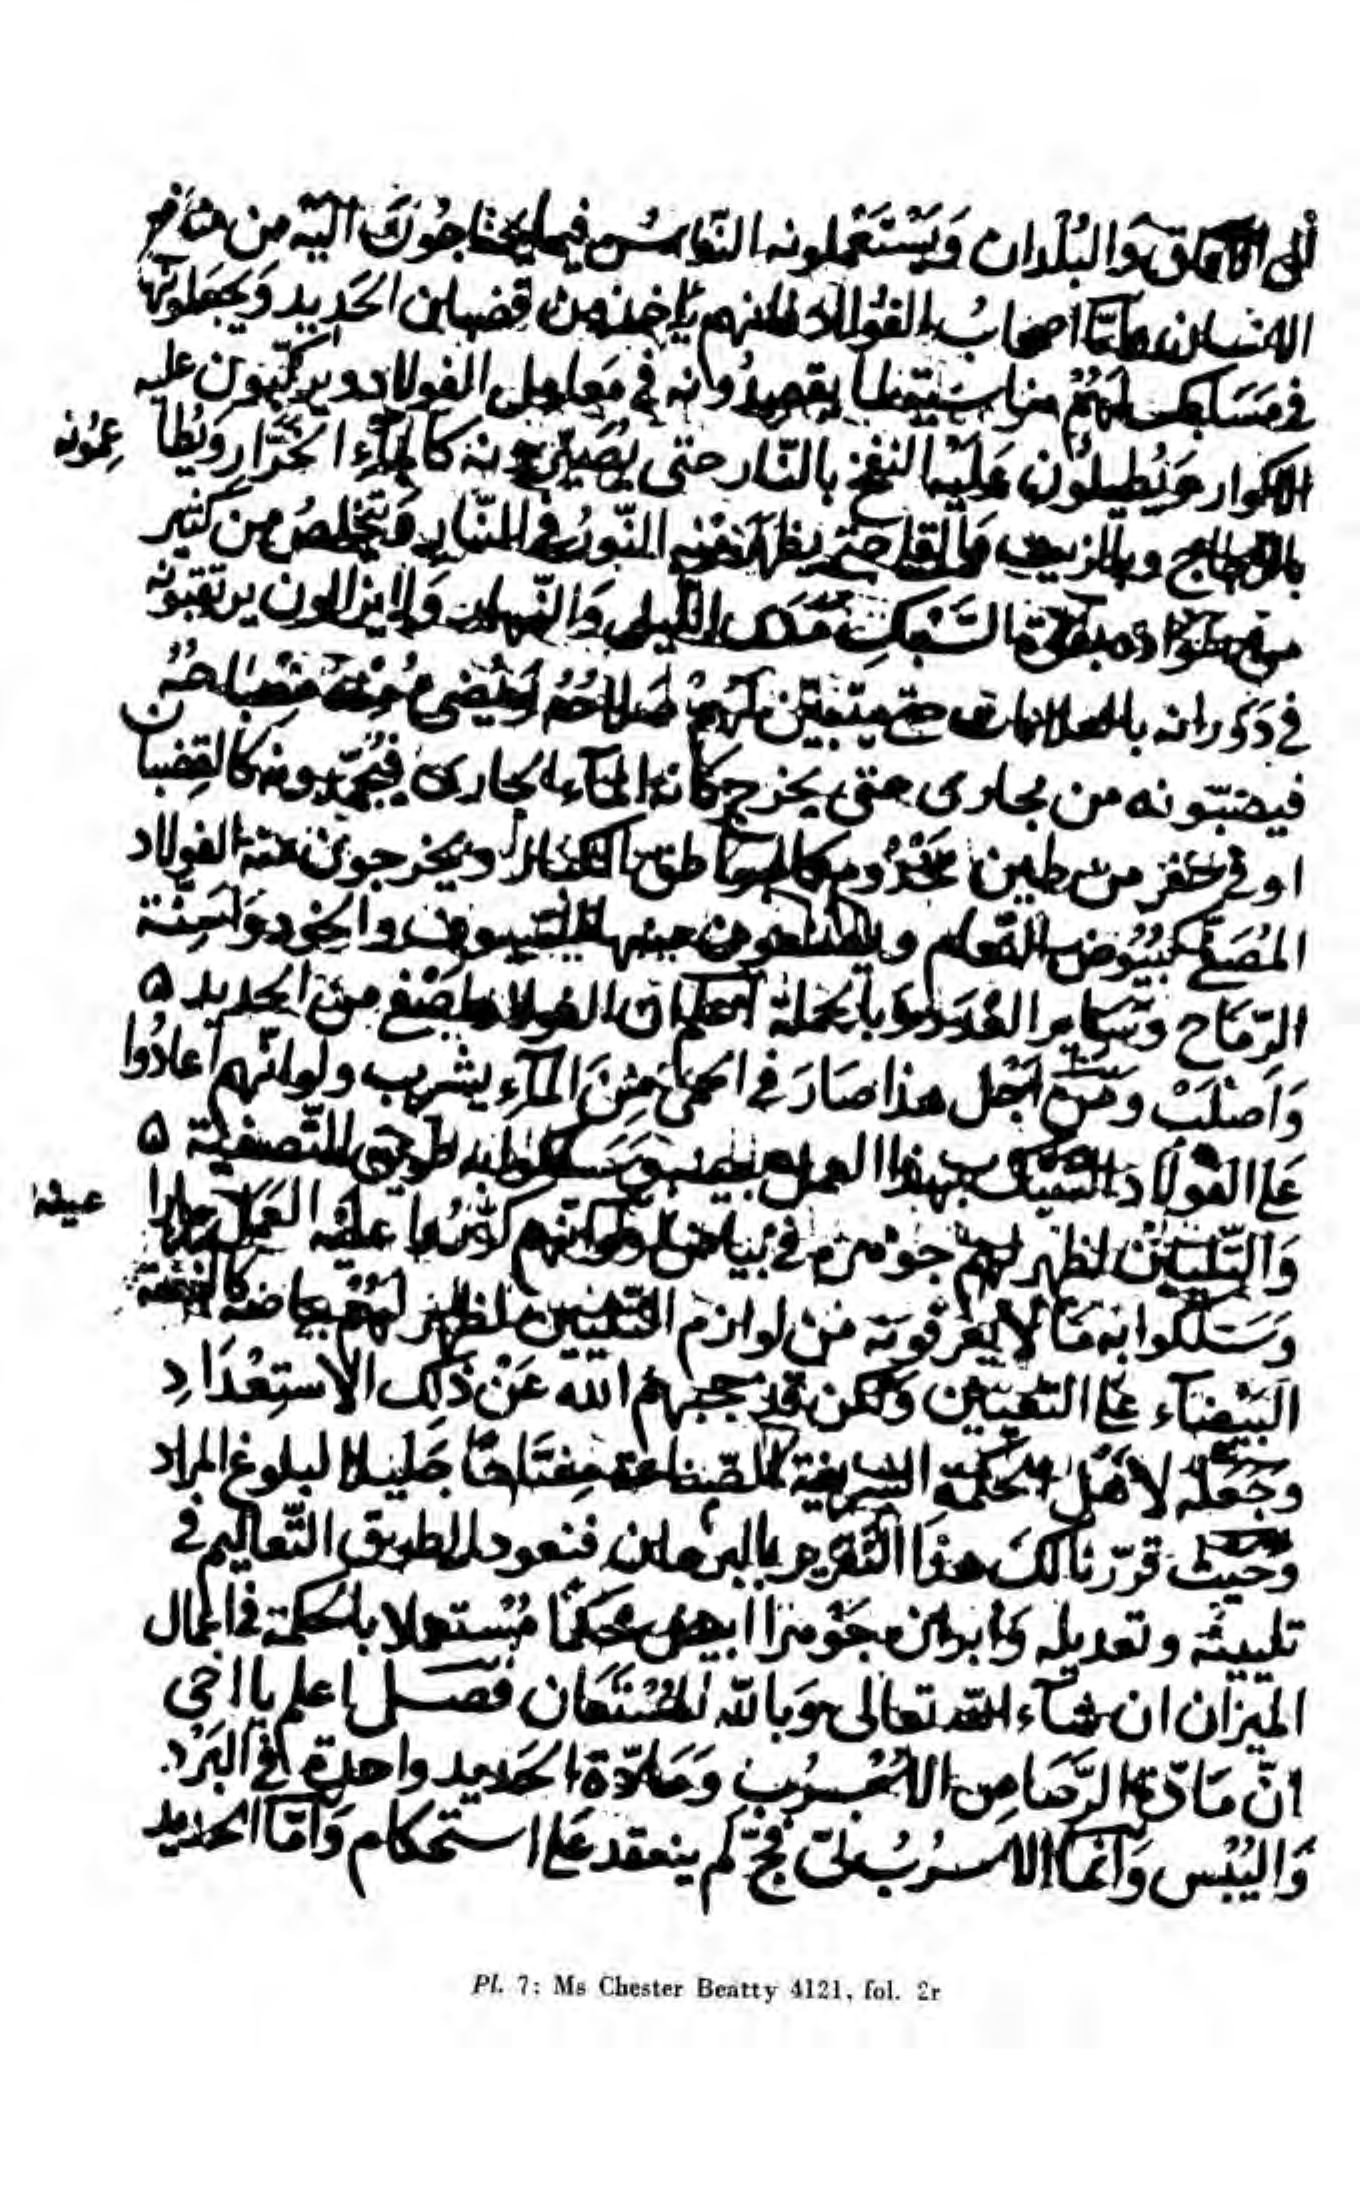 إلى الآفاق وَالبُلْدان وَيَسْتَعْملونه النّاسُ فيما يحتاجُونَ اليْه من منافع
الانسان وامّا اصحابُ الفولاد فانهم يأخذون قضبان الحَديد وَيجعَلونها
في مَسَابك لهُمْ مناسبة لما يقصدُونه في مَعامل الفولاد ويركّبون عليه
الاكوار وَيُطيلُون عَليْها النفخ بالنّار حتى يُصَيّرونه كالمآءِ الخرّار وَيُطْ
عِمُونه
بالزجاج وبالزيت وَالقلى حتى يظهر منه النّورُ في النّار وَيتخلصُ من كثير
من سَوَاده بقوّة السَّبْكِ مَدَى الليل وَالنّهار وَلا يزالون يرتقبونه
في دَوَرانه بالعلامات حتى يتبيّن لهُمْ صَلاحُهُ وَيُضيءُ مِنْهُ مِصْبَاحُهُ
فيصبّونه من مجارى حتى يخرج كأنه المآء الجارى فيُجمّدونه كالقضبان
او في حُفر من طين مَخْدُوم كالبواطق الكبار ويخرجون منه الفولاد
المُصَفّى كبُيُوض النّعام ويصنعون منها السّيوف والخود وَاسِنّة
الرّمَاح وَسَائر العُدَد وَبالجملة الفولاد اصْفى من الحديد ٥
وَاَصْلَبْ ومن أجْل هذا صَارَ في احمى مِنَ المآءِ يشرب ولو انّهم اعادُوا
عَلى الفولاد السّبك بهذا العمل وَسَلكوا به طريق التّصفية ٥
وَالتّلْيِيْن لظهر لهُمْ جَوْهره في بياض وَلو انّهم كرّرُوا عليْه العَمَل مرارا
عينه
وَسَلكوا به مَا لا يعْرفونه مِنْ لوازم التّليين لظهر لهُمْ بياضه كالفضّة
البَيْضآء عَلى التعيين وَلكن قد حجبهمُ الله عَنْ ذلك الاسْتِعْدَادِ
وَجَعَلهُ لأهْل الحكمة الشريفة للصّناعة مِفتَاحًا جَليلا لبلوغ المراد
وَحَيْث قرّرنا لكَ هذا التّقرير بالبرهان فنعود الى طريق التّعاليم في
تليينه وتعديله وَابرازه جَوْهرًا ابيض محكمًا مُسْتعملا بالحكمة في اعمال
الميزان ان شآء الله تعالى وَبالله المُسْتَعَان فصَـل اعلم يا اخى
انّ مَادّة الرّصَاص الاُسْرُبْ وَمَادّة الحَديد واحدة في البَرْد
وَاليُبْس وَانّما الاُسرُبُ نيّ فجّ لم ينعقد عَلى استحكام وَامّا الحديد
Pl. 7: Ms Chester Beatty 4121, fol. 2r